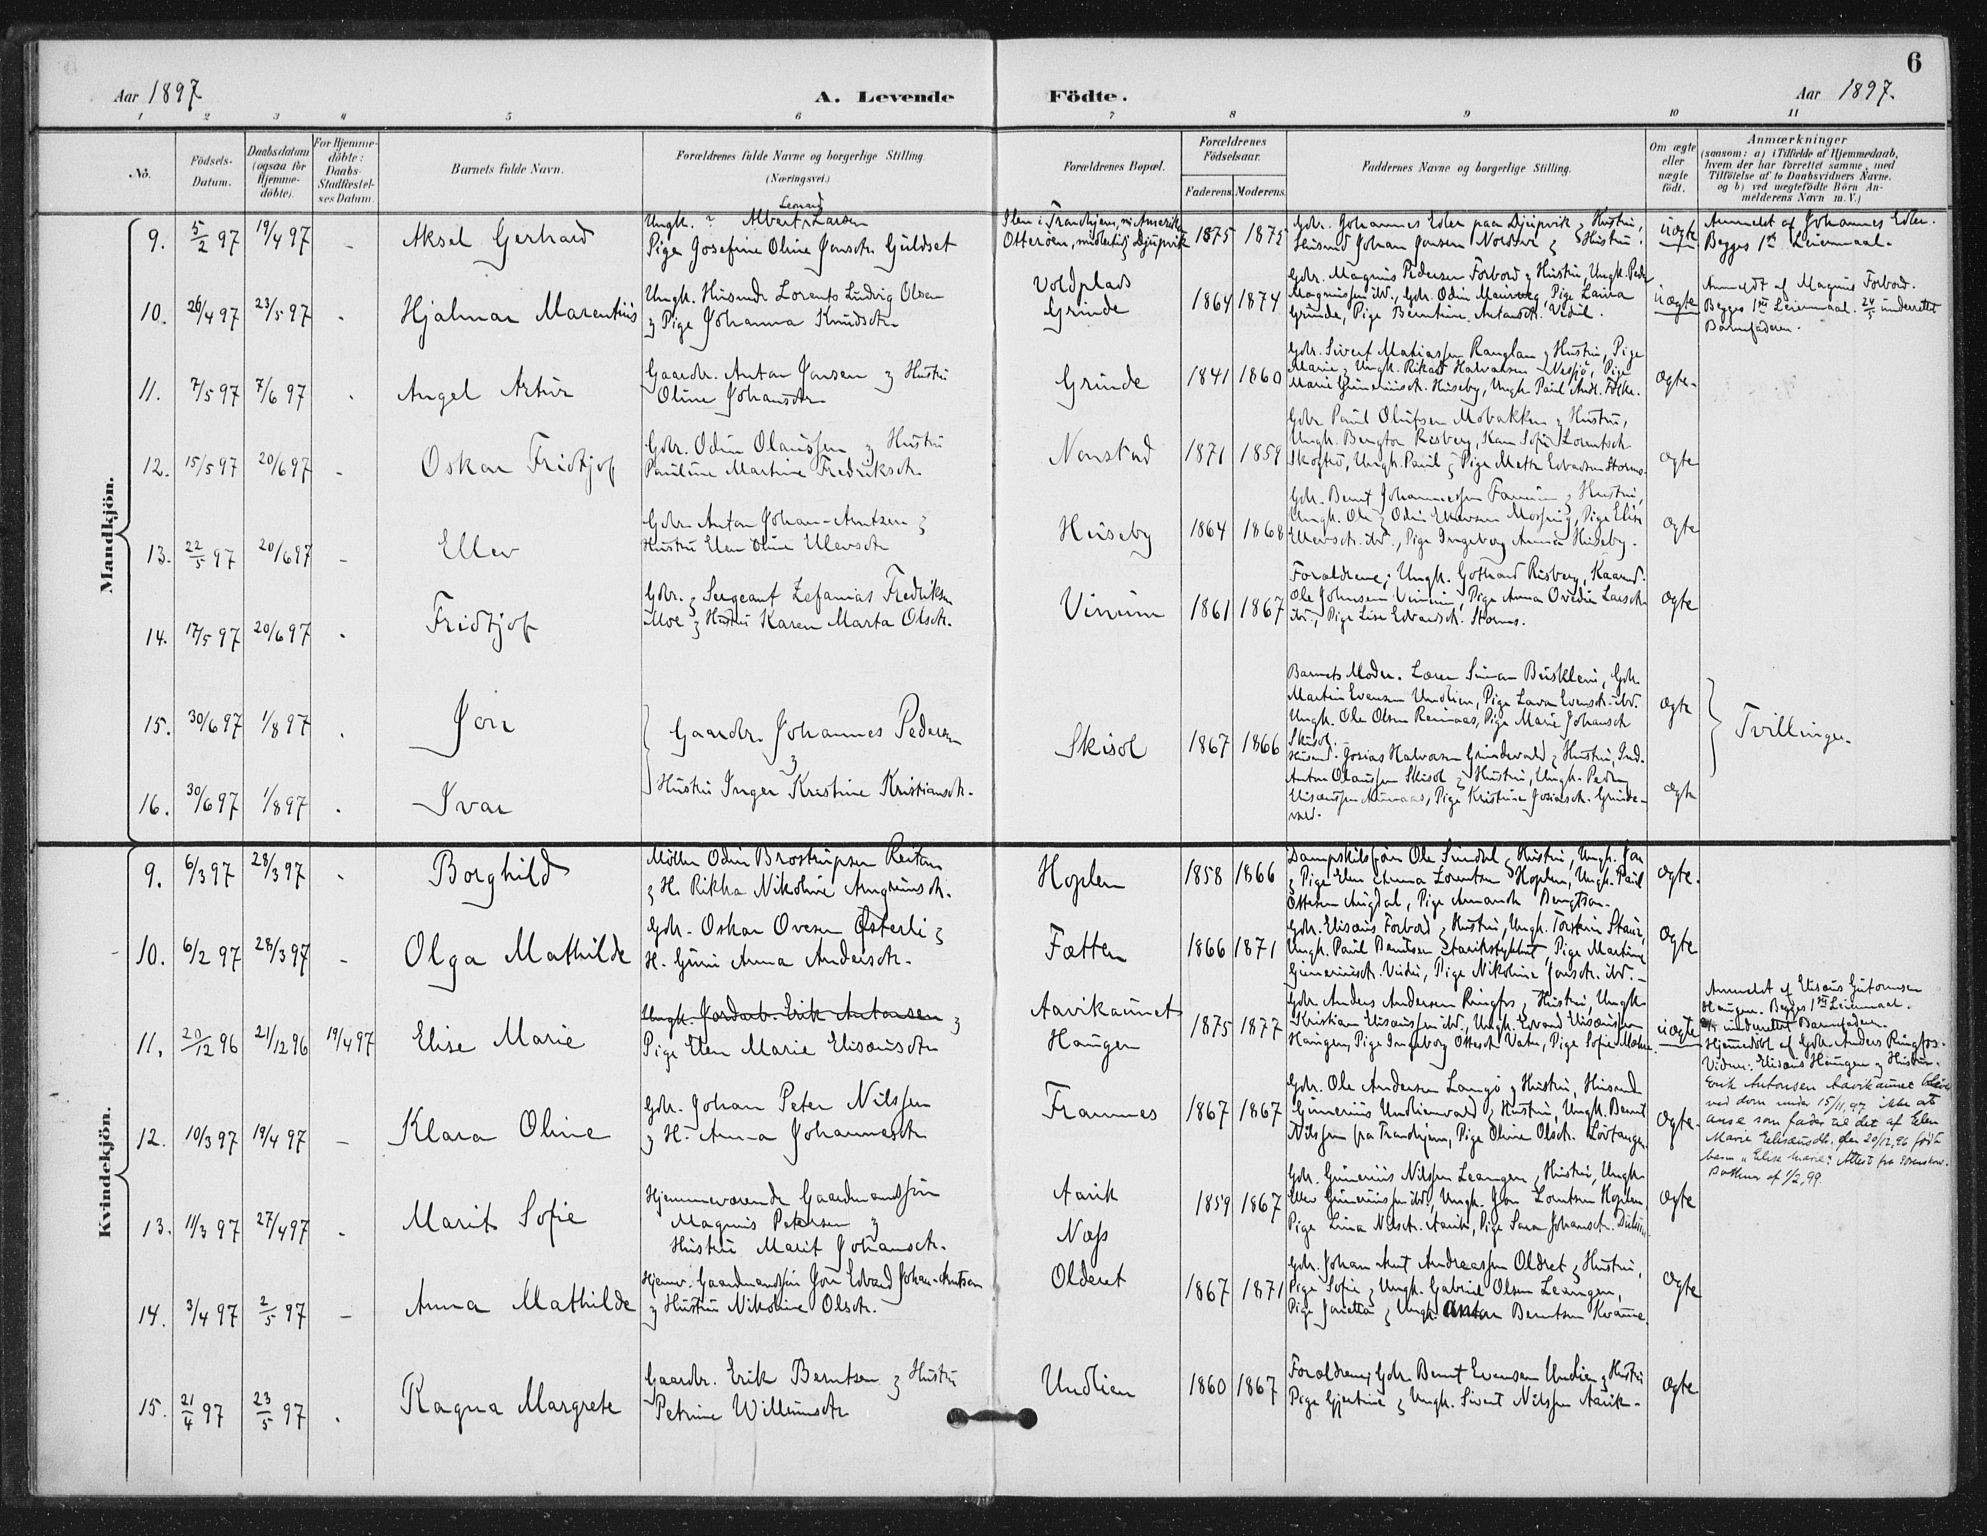 6
Aar 1897
A. Levende
Födte.
Aar 1897.
1 2 3 4 5 6 7 8 9 10 11
No.
Födsels-
Datum.
Daabsdatum
(ogsaa for
Hjemme-
döbte).
For Hjemme-
döbte:
Daabs-
Stadfæstel-
ses Datum.
Barnets fulde Navn.
Forældrenes fulde Navne og borgerlige Stilling.
(Næringsvei.)
Forældrenes Bopæl.
Forældrenes
Födselsaar.
Faderens. Moderens.
Faddernes Navne og borgerlige Stilling.
Om ægte
eller
uægte
født.
Anmærkninger
(saasom: a) i Tilfælde af Hjemmedaab,
hvem der har forrettet samme, med
Tilföielse af to Daabsvidners Navne,
og b) ved uægtefödte Börn An-
melderens Navn m. V.)
Mandkjön.
9. 5/2 97 19/4 97 - Aksel Gerhard
Leonard
Ungk. ? Albert Larsen
Pige Josefine Oline Jonsdtr. Guldset
Ilen i Trondhjem, nu Amerika
Otterøen, midlertidig Djupvik
1875 1875
Gdbr. Johannes Edler paa Djupvik & Hustru,
Husmd Johan Jonsen & Hustru.
uægte
Anmeldt af Johannes Edler.
Begges 1ste Leiermaal.
10. 26/4 97 23/5 97 - Hjalmar Marentius
Ungk. Husmdr. Lorents Ludvig Olsen
& Pige Johanna Knudsdtr.
Voldplads
Grinde
1864 1874
Gdbr. Magnus Pedersen Forbord & Hustru, Ungk. Peder
Magnussen ibd., Gdbr. Odin, Pige Laura
Grinde, Pige Berntine Antonsdtr. Vedul.
uægte
Anmeldt af Magnus Forbord.
Begges 1ste Leiermaal. 24/5 underrettet
Barnefaderen.
11. 7/5 97 7/6 97 . Angel Artur
Gaardbr. Anton Jonsen & Hustru
Oline Johansdtr.
Grinde
1841 1860
Gdbr. Sivert Matiassen Ranglan & Hustru, Pige
Marie & Ungk. Rikard Halvorsen Næsjø, Pige
Marie Guneriusdt. Huseby, Ungk. Paul Andr. Folke.
ægte.
12. 15/5 97 20/6 97 - Oskar Fridtjof
Gdbr. Odin Olaussen & Hustru
Pauline Martine Fredriksdtr.
Nonstad
1871 1859
Gdbr Paul Olufsen Mobakken & Hustru,
Ungk. Bengton Risberg, Kone Sofie Lorentsdtr.
Ungk. Paul & Pige Mette Edvardsen Stornes.
ægte
13. 22/5 97 20/6 97 - Ellev
Gdbr. Anton Johan-Arntsen &
Hustru Elen Oline Ellevsdtr
Huseby
1864 1868
Gdbr. Bernt Johannessen & Hustru,
Ungk. Ole & Odin Ellevsen, Pige Elise
Ellevsdtr. ibd., Pige Ingeborg Anna Huseby.
ægte
14. 17/5 97 20/6 97 . Fridtjof
Gdbr. & Sergeant Zefanias Fredriksen
Moe & Hustru Karen Marta Olsdtr.
Vinum
1861 1867
Forældrene; Ungk. Gothard Risberg, Kaarmd.
Ole Johnsen Vinum, Pige Anna Ovedie Larsdtr.
ibd., Pige Lise Edvardsdtr. Stornes.
ægte
15. 30/6 97 1/8 97 . Jon
Gaardbr. Johannes Pedersen
&
Hustru Inger Kristine Kristiansdtr.
Skisol
1867 1866
Barnets Moder. Lærer Simon Buisklein, Gdbr.
Martin Evensen Undlien, Pige Lava Evensdtr. ibd.
Ungk. Ole Olsen Reinaas, Pige Marie Johansdt
Skisol.
ægte
Tvillinger.
16. 30/6 97 1/8 97 . Ivar
Husmd. Josias Halvorsen Grindevald & Hustru, Ind.
Anton Olaussen Skisol & Hustru, Ungk. Peder
Eliseussen, Pige Kristine Josiasdtr. Grinde-
vald.
ægte
Kvindekjön.
9. 6/3 97 28/3 97 . Borghild
Møller Odin Brostrupsen Reitan
& H. Rikka Nikoline Arngrimsdt.
Hoplen
1858 1866
Dampskibsfører Ole Sundal & Hustru, Ungk. Jon
& Pige Elen Anna Lorentsen Hoplen, Ungk. Paul
Ottesen, Pige Amanda Bengtson.
ægte.
10. 6/2 97 28/3 97 - Olga Mathilde
Gdbr. Oskar Ovesen Østerli &
H. Guru Anna Andersdtr.
Fætten
1866 1871
Gdbr. Eliseus Forbord & Hustru, Ungk. Torstein,
Ungk. Paul Berntsen, Pige Martine
Guneriusdt., Pige Nikoline Jonsdt. ibd.
ægte
11. 20/12 96 21/12 96 19/4 97 Elise Marie
Ungk. Jordarb. Erik Antonsen &
Pige Elen Marie Eliseusdtr
Aavikaunet
Haugen
1875 1877
Gdbr. Anders Andersen Ringfos & Hustru, Ungk.
Kristian Eliseussen ibd., Ungk. Edvard Eliseussen
Haugen, Pige Ingeborg Ottesdt. Vatn, Pige Sofie.
uægte
Anmeldt af Eliseus Gutormsen
Haugen. Begges 1ste Leiermaal.
underrettet Barnefaderen.
Hjemmedøbt af Gdbr. Anders Ringfos.
Vidner: Eliseus Haugen & Hustru.
Erik Antonsen Aavikaunet blev
ved dom under 15/11, 97 ikke at
anse som fader til det af Elen
Marie Eliseusdtr. den 20/12, 96 fødte
barn "Elise Marie". Attest fra
af 1/2, 99.
12. 10/3 97 19/4 97 - Klara Oline
Gdbr. Johan Peter Nilssen
& H. Anna Johannesdtr.
Framnes
1867 1867
Gdbr. Ole Andersen Langø & Hustru, Husmd
Gunerius Undlienvald & Hustru, Ungk. Bernt
Nilssen fra Trondhjem, Pige Oline Olsdt. Løvtangen
ægte.
13. 11/3 97 27/4 97 . Marit Sofie
Hjemmeværende Gaardmandssøn
Magnus Petersen &
Hustru Marit Johansdtr.
Aavik
Næss
1859 1867
Gdbr. Gunerius Nilssen Leangen & Hustru, Ungk.
Ellev Guneriussen ibd., Ungk. Jon Lorntsen Hoplen,
Pige Lina Nilsdt. Aavik, Pige Sara Johansdt.
ægte
14. 3/4 97 2/5 97 - Anna Mathilde
Hjemv. Gaardmandssøn Jon Edvard Johan-Arntsen
& Hustru Nikoline Olsdtr.
Olderet
1867 1871
Gdbr. Johan Arnt Andreassen Oldret & Hustru,
Pige Sofie & Ungk. Gabriel Olsen Leangen,
Pige Jonetta & Ungk. Anton Berntsen Kvamme.
ægte
15. 21/4 97 23/5 97 . Ragna Margrete
Gaardbr. Erik Berntsen & Hustru
Petrine Willumsdtr
Undlien
1860 1867
Forældrene, Gdbr. Bernt Evensen Undlien & Hustru
Pige Gjertine & Ungk. Sivert Nilssen Aavik.
ægte